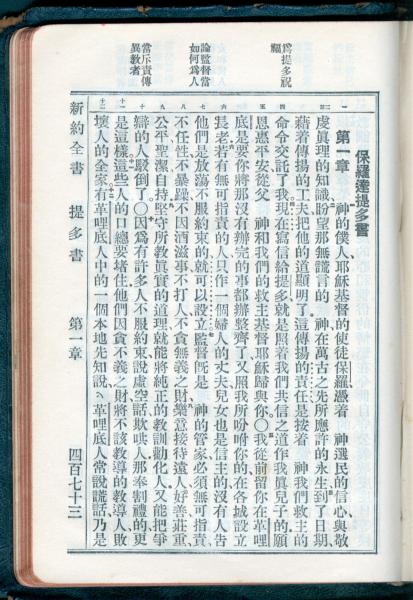 爲提多祝
福
論監督當
如何爲人
當斥責傳
異教者
一
二三
四
五
六
七
八
九
十
十一
十二
保羅達提多書
第一章 神的僕人耶穌基督的使徒保羅憑着 神選民的信心與敬
虔眞理的知識盼望那無謊言的 神在萬古之先所應許的永生到了日期
藉着傳揚的工夫把他的道顯明了這傳揚的責任是按着 神我們救主的
命令交託了我現在寫信給提多就是照着我們共信之道作我眞兒子的願
恩惠平安從父 神和我們的救主基督耶穌歸與你○我從前留你在革哩
底是要你將那沒有辦完的事都辦整齊了又照我所吩咐你的在各城設立
長老若有無可指責的人只作一個婦人的丈夫兒女也是信主的沒有人告
他們是放蕩不服約束的就可以設立監督旣是 神的管家必須無可指責
不任性不暴躁不因酒滋事不打人不貪無義之財樂意接待遠人好善莊重
公平聖潔自持堅守所教眞實的道理就能將純正的教訓勸化人又能把爭
辯的人駁倒了○因爲有許多人不服約束說虛空話欺哄人那奉割禮的更
是這樣這些人的口總要堵住他們因貪不義之財將不該教導的教導人敗
壞人的全家有革哩底人中的一個本地先知說革哩底人常說謊話乃是
新約全書 提多書 第一章 四百七十三